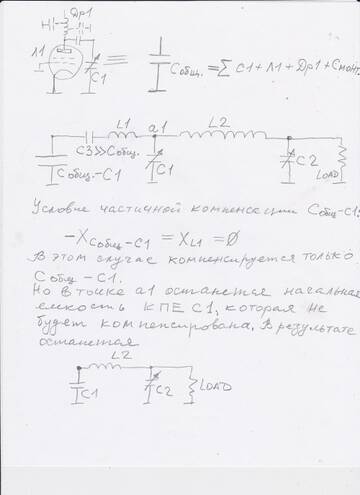 Др1
Н
Л1
С1
Cобщ. = Σ C1 + Л1 + Др1 + Cмонт
L1
а1
L2
С3 >> Cобщ.
C1
C2
LOAD
Cобщ. - C1
Условие частичной компенсации Cобщ - C1:
-XCобщ-C1 = XL1 = Ø
В этом случае компенсируется только
Cобщ - C1.
Но в точке а1 останется начальная
емкость КПЕ С1, которая не
будет компенсирована. В результате
останется
L2
C1
C2
LOAD